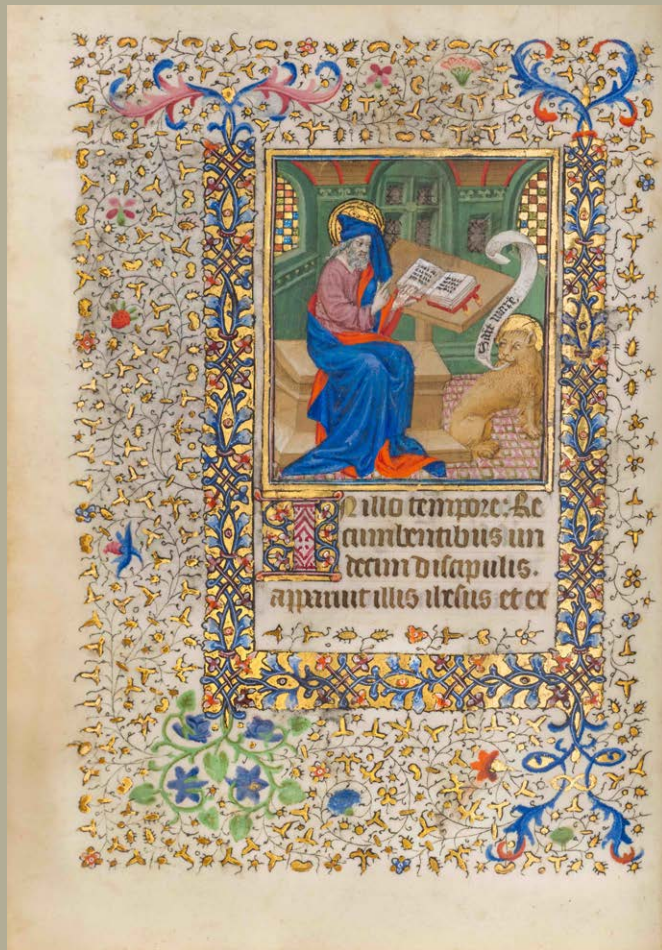 Sante marce
In illo tempore: Re
cumbentibus un
decim discipulis.
apparuit illis ihesus et ex